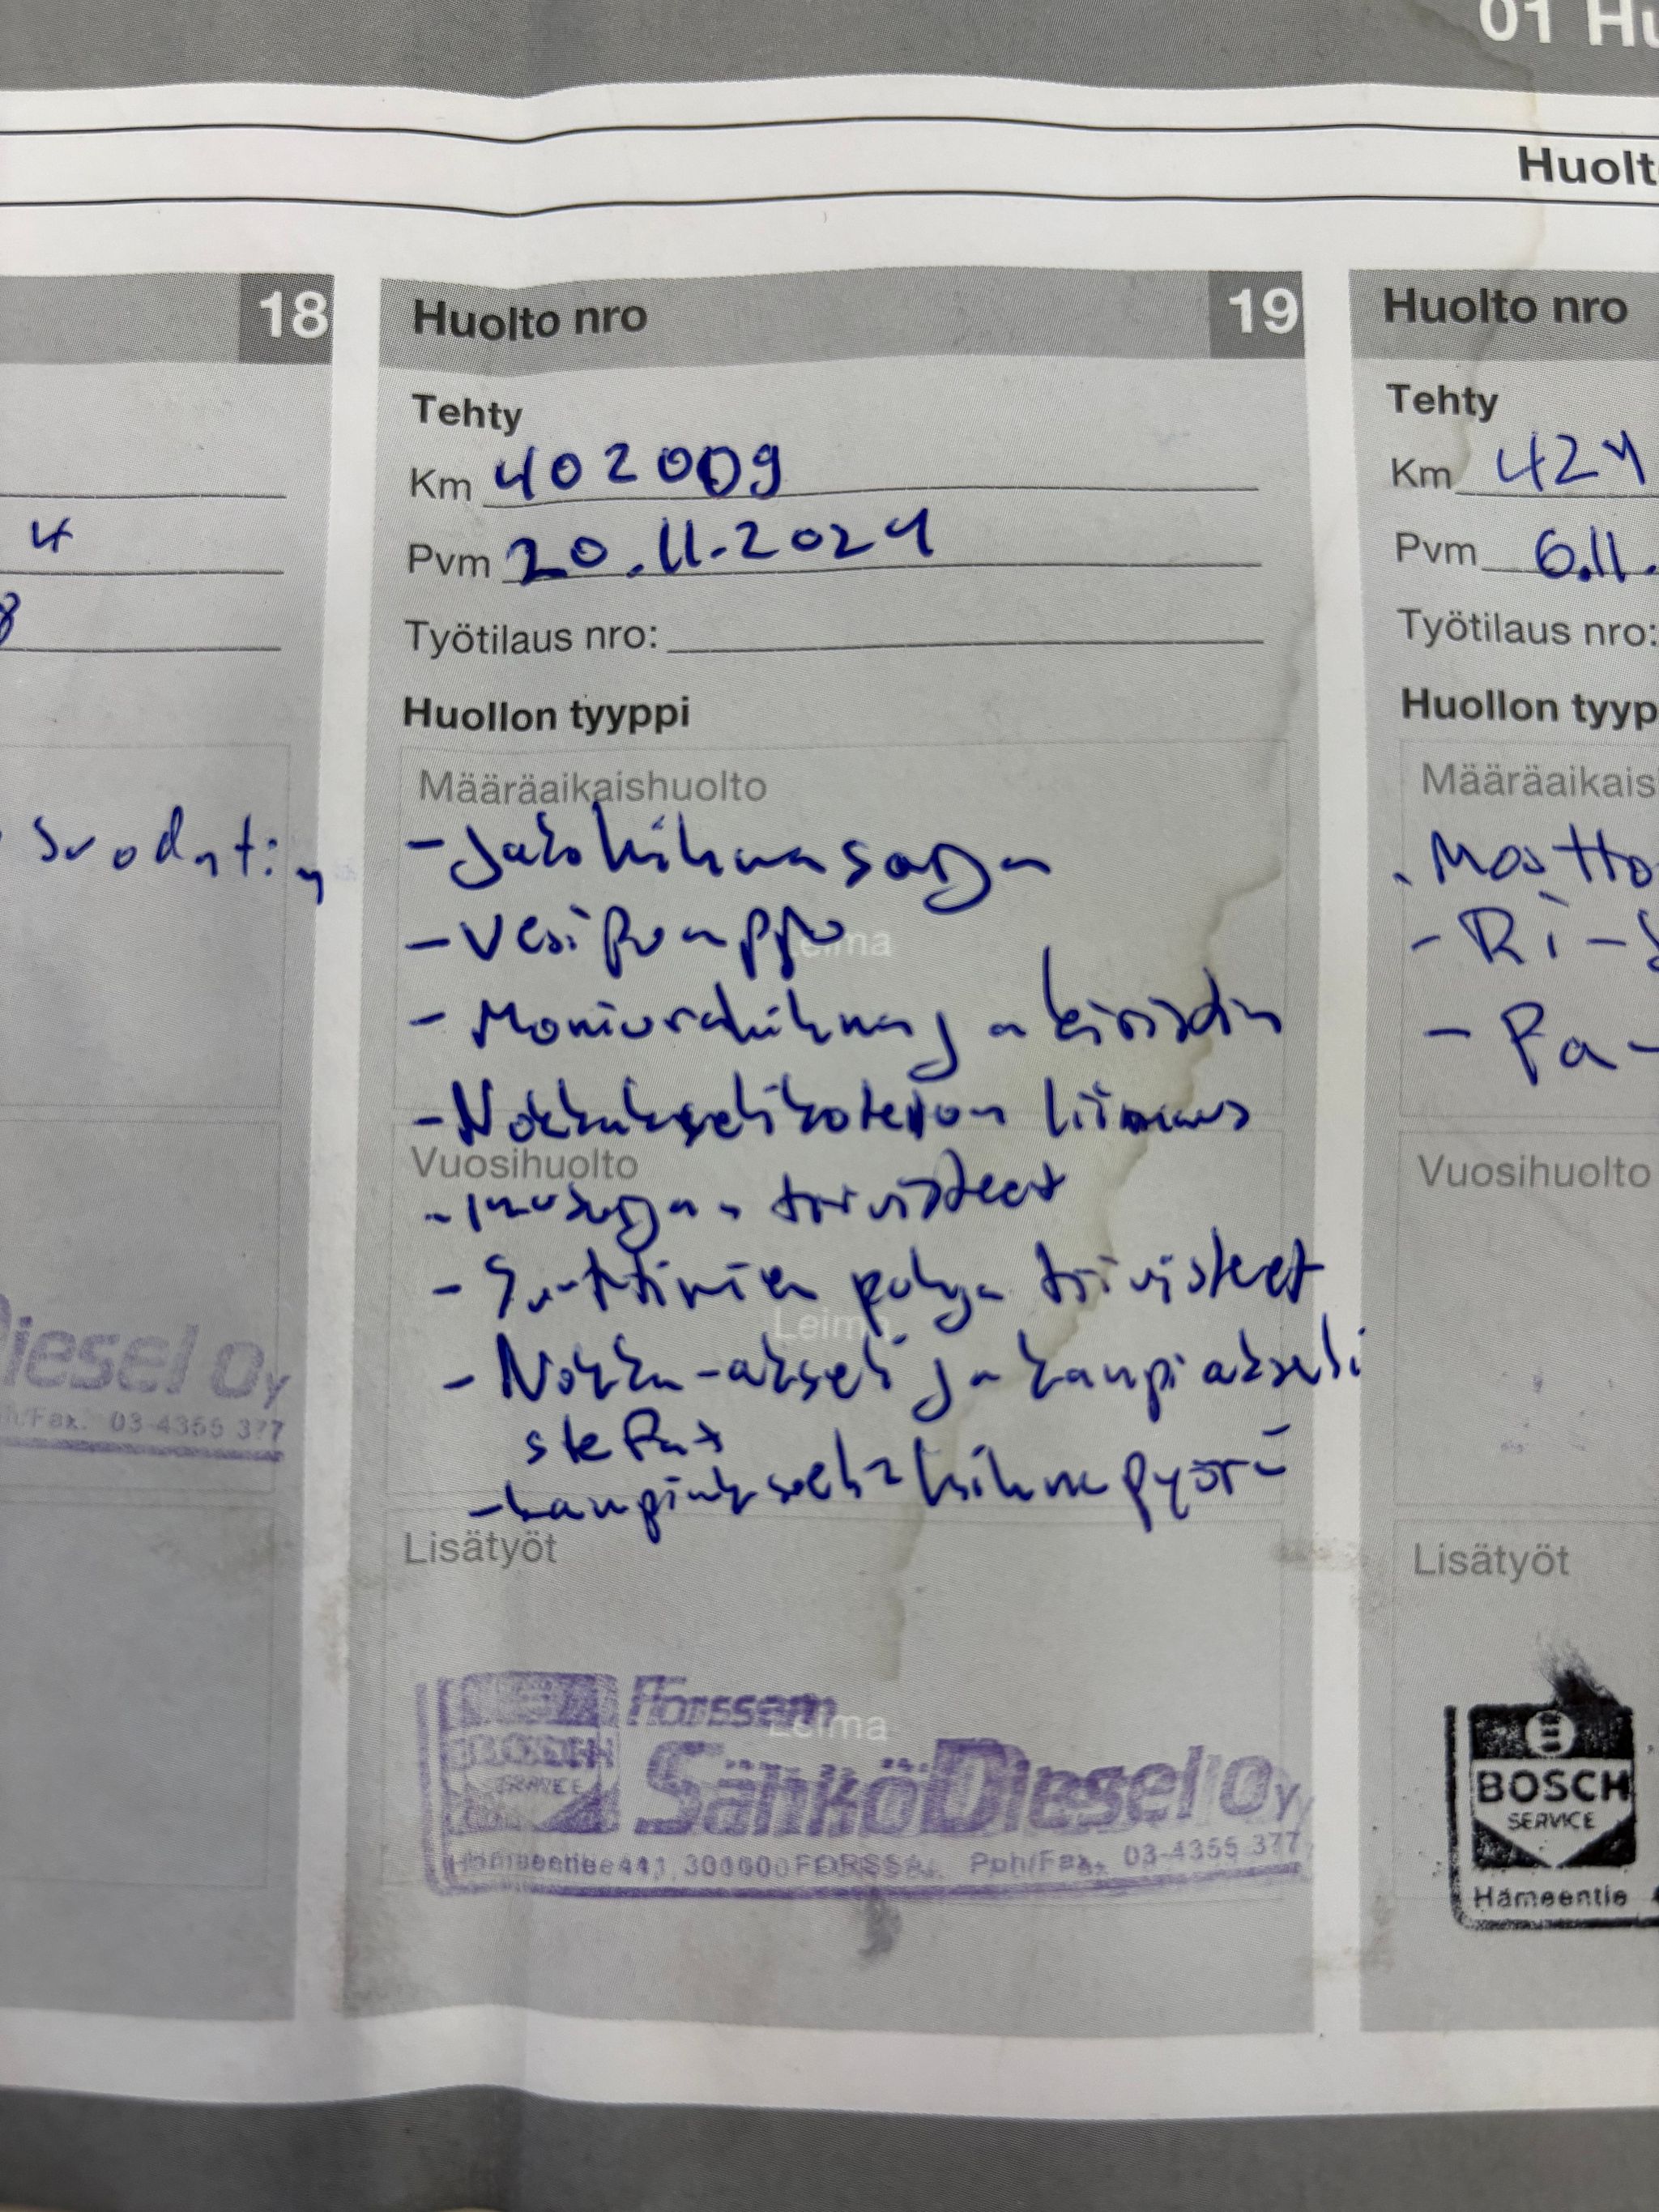 01 Hu
Huolt
18
4
8
suodatin
Diesel Oy
h/Fax. 03-4355 377
Huolto nro 19
Tehty
Km 402009
Pvm 20.11.2024
Työtilaus nro:
Huollon tyyppi
Määräaikaishuolto
- Jakohihnasarja
- Vesipumppu
Leima
- Moniurahihna ja kiristin
- Nokkakselikotelon liimaus
Vuosihuolto
- imusarjan tiivisteet
- Suuttimien pohja tiivisteet
Leima
- Nokka-akseli ja kampiakseli
stefat
- kampiakselin hihnapyörä
Lisätyöt
Leima
Forssan
BOSCH
SERVICE
SähköDiesel Oy
Hämeentie 30600 FORSSA. Puh/Fax. 03-4355 377
Huolto nro
Tehty
Km 424
Pvm 6.11.
Työtilaus nro:
Huollon tyyp
Määräaikais
Vuosihuolto
Lisätyöt
BOSCH
SERVICE
Hämeentie